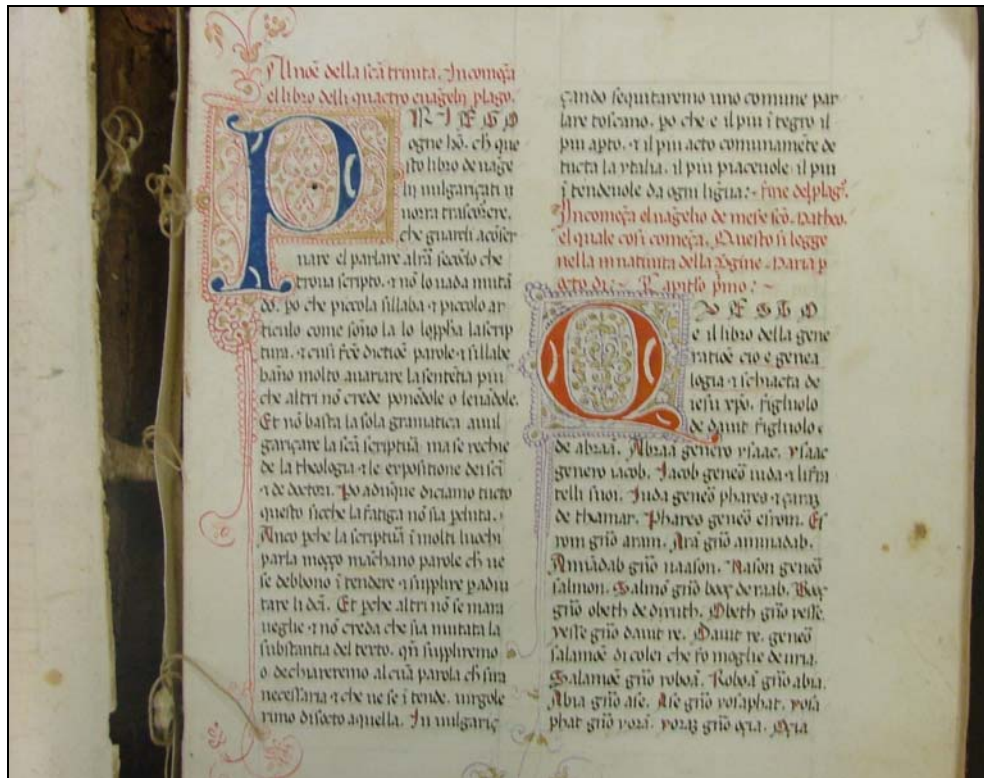 Al noē della scā trinita. Incomēça
el libro delli quactro euāgeli plago.
PRIEGO
ogne hō. ch que
sto libro de uāge
li uulgariçati u
norra trascōrere.
che guardi acōser
uare el parlare altrā secōdo che
troua scripto. ⁊ nō lo uada mutā
do. po che piccola sillaba ⁊ piccolo ar
ticulo come sōno la lo la scrip
tura. ⁊ cusi dictiōe parole ⁊ sillabe
hāno molto auariare la sentētia piu
che altri nō crede ponēdole o leuādole.
Et nō basta la sola gramatica auul
gariçare la scā scripturā ma se rechie
de la theologia ⁊ le expositione dei sci
⁊ de doctori. Po adūque diciamo tucto
questo sicche la fatiga nō sia pduta.
Anco pche la scripturā ī molti luochi
parla moçço māchano parole ch ue
se debbono ītendere ⁊ supplire p adiu
tare li dcī. Et pche altri nō se mara
ueglie ⁊ nō creda che sia mutata la
substantia del texto. qñ suppliremo
o dechiareremo alcuā parola ch sira
necessaria ⁊ che ue se ītende. uirgole
rimo disocto aquella. In uulgariç
çando sequitaremo uno comune par
lare toscano. po che e il piu ītegro il
piu apto. ⁊ il piu acto comunamēte de
tucta la ytalia. il piu piaceuole il piu
ītendeuole da ogni ligua: fine del plago.
Incomēça el uāgelio de mese scō. Matheo.
el quale cosi comēça. Questo si legge
nella in natiuita della Vgine Maria p
octo di: ~ Capitlo pmo: ~
QUESTO
e il libro della gene
ratiōe cio e genea
logia ⁊ schiacta de
iesu xpo. figluolo
de dauit figluolo
de abraā. Abraā genero ysaac. ysaac
genero iacob. Jacob geneō iuda ⁊ li fra
telli suoi. Juda geneō phares ⁊ çaraʒ
de thamar. Phares geneō esrom. Es
rom gnō aram. Arā gnō aminadab.
Amīadab gnō naason. Nason geneō
salmon. Salmō gnō booç de raab. Booç
gnō obeth de diruth. Obeth gnō yesse.
yesse gnō dauit re. Dauit re. geneō
salamōe di colei che fo moglie de uria.
Salamōe gnō roboā. Roboā gnō abia.
Abia gnō ase. Ase gnō yosaphat. yosa
phat gnō yorā. yoraʒ gnō oçia. Oçia